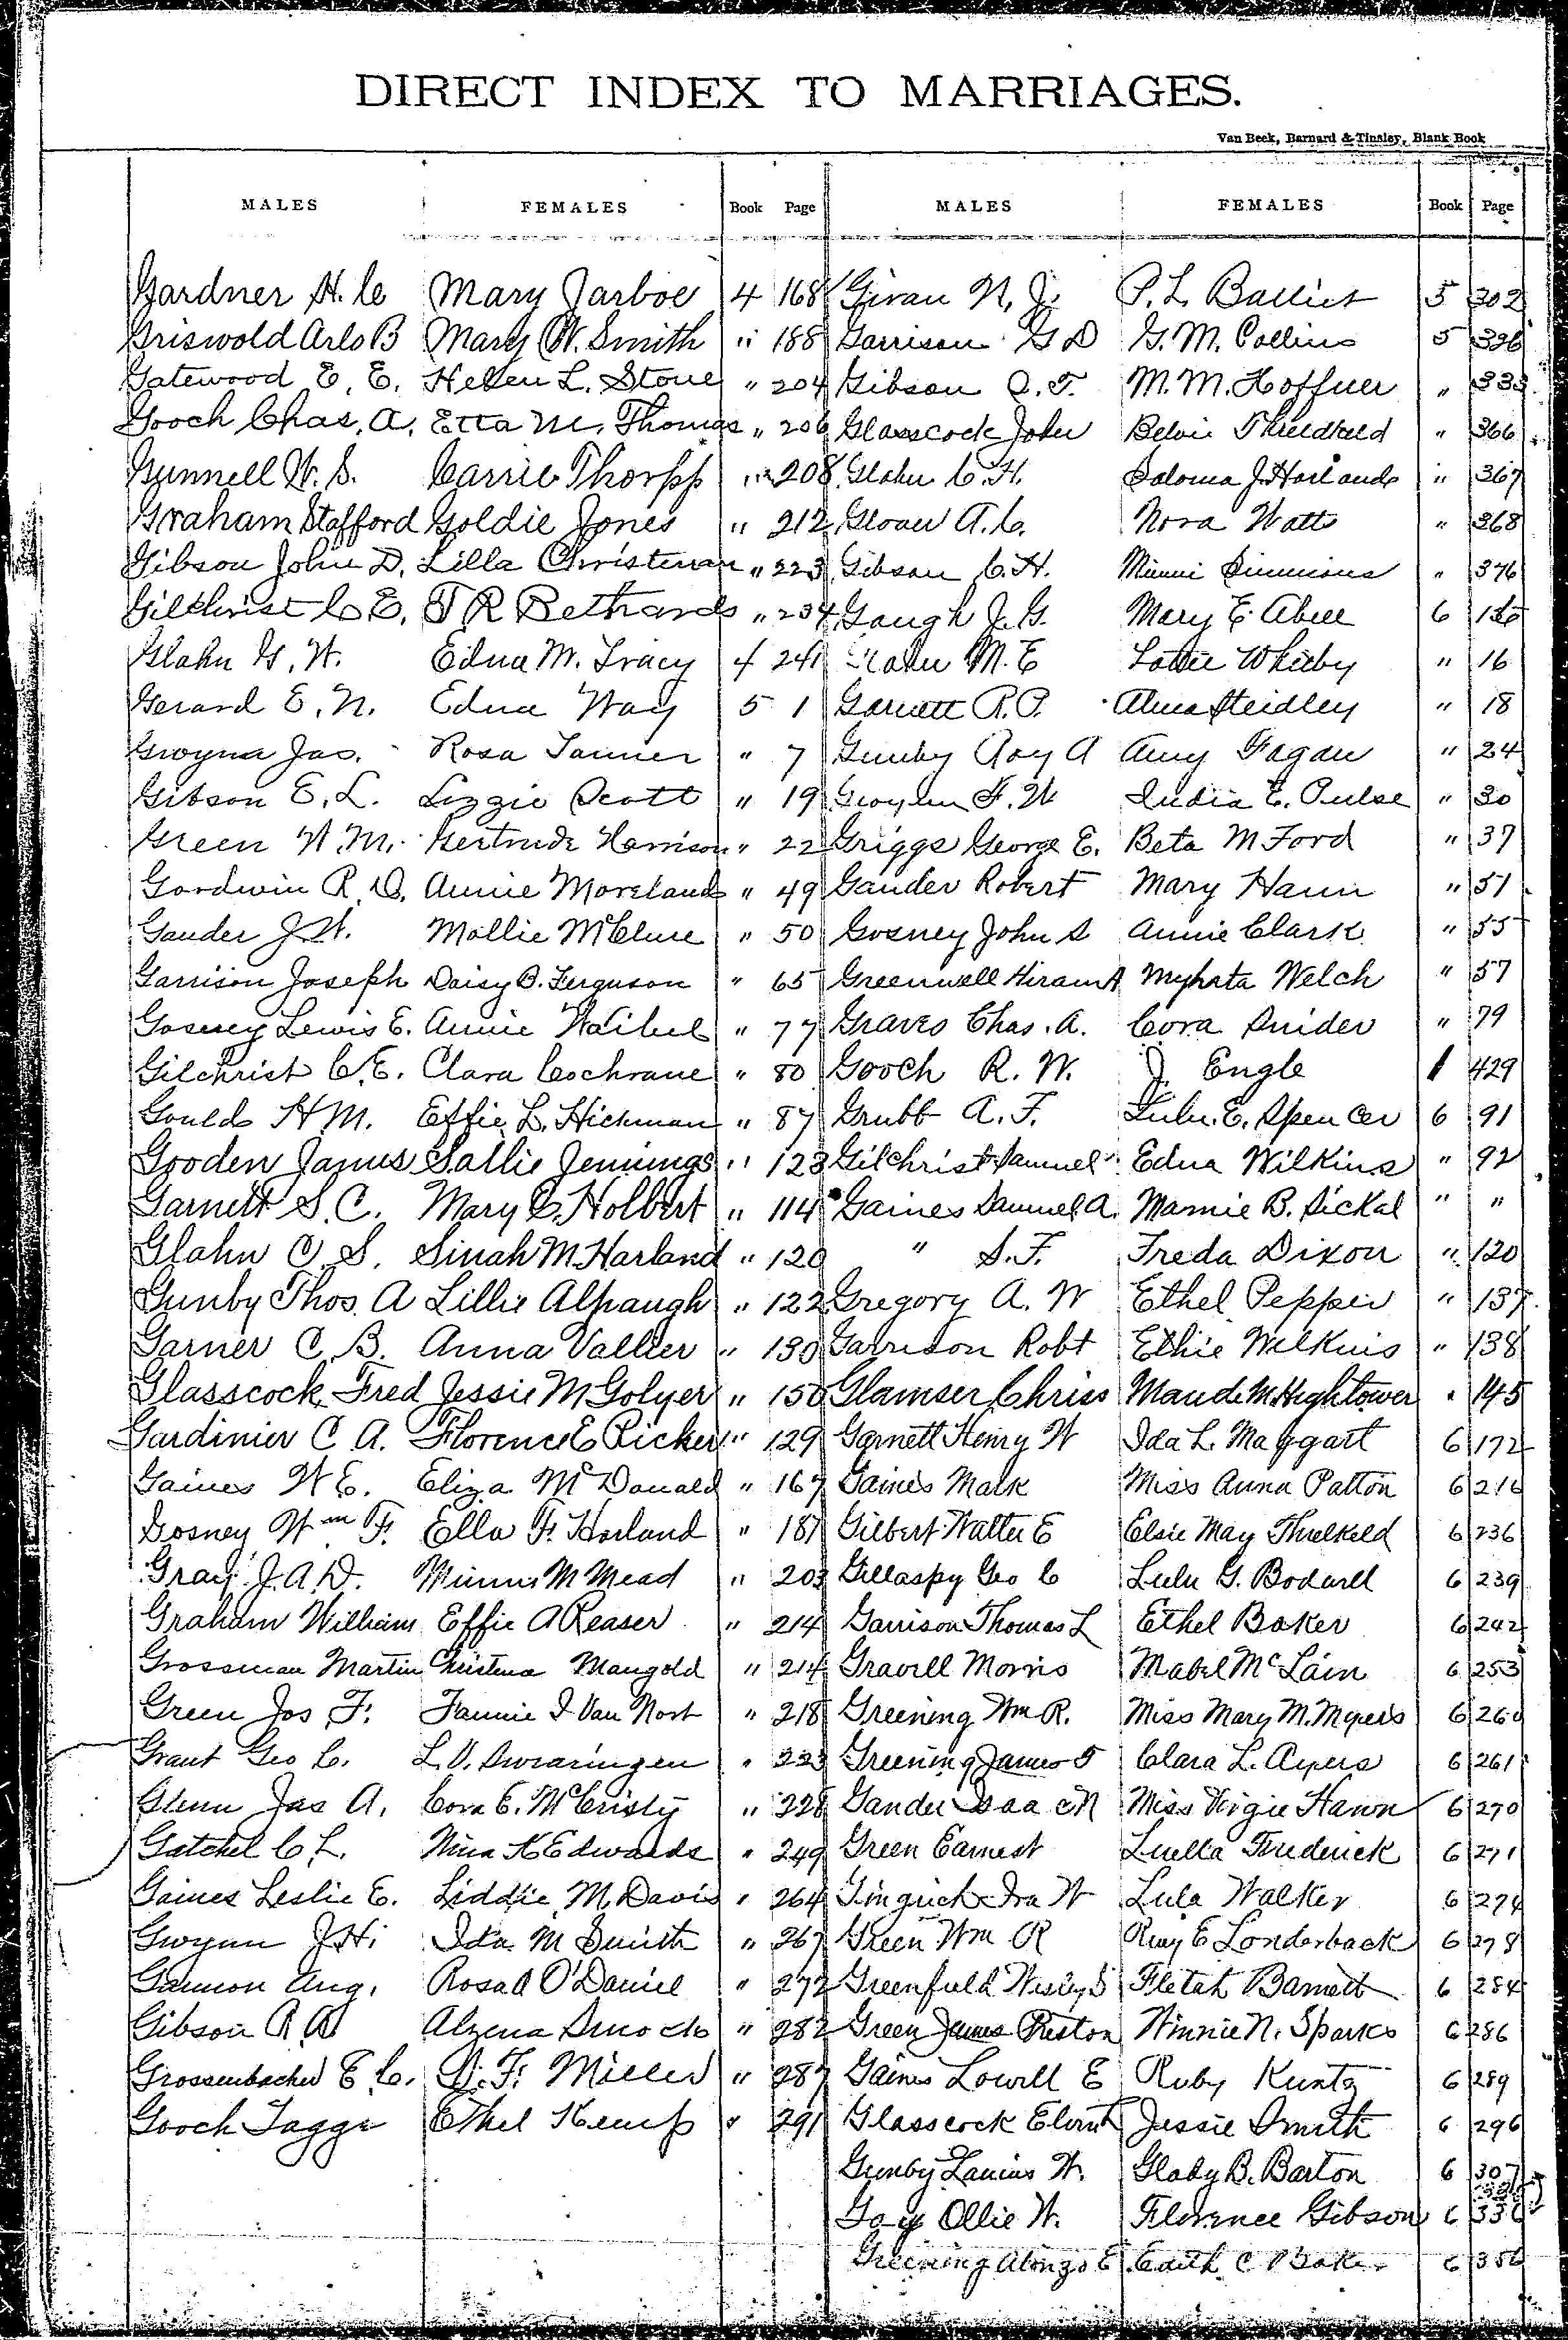 DIRECT INDEX TO MARRIAGES.
Van Beek, Barnard & Tinsley, Blank Book
MALES FEMALES Book Page MALES FEMALES Book Page
Gardner H. C Mary Jarboe 4 168 Givan N. J. P. L. Balliet 5 302
Griswold Arlo B Mary W. Smith " 188 Garrison G D G. M. Collins 5 326
Gatewood E. E. Helen L. Stone " 204 Gibson J. T. M. M. Hoffner " 333
Gooch Chas. A. Etta M. Thomas " 206 Glasscock John Belvie Threldkeld " 366
Gunnell W. S. Carrie Thorpp " 208 Glahn C. H. Saloma J. Harland " 367
Graham Stafford Goldie Jones " 212 Glover A. C. Nora Watts " 368
Gibson John D. Lilla Christman " 223 Gibson C. H. Minnie Simmions " 376
Gilchrist C E. T R Bethards " 234 Gough J. G. Mary E. Abell 6
Glahn G. W. Edna M. Tracy 4 241 M. E Lottie Whitby " 16
Gerard E. N. Edna Way 5 1 Garnett R. P. Alma Heidley " 18
Gwynn Jas. Rosa Tanner " 7 Gunby Roy A Amy Fagan " 24
Gibson E. L. Lizzie Scott " 19 F. W India E. Pulse " 30
Green W. M. Gertrude Harrison " 22 Griggs George E. Beta M Ford " 37
Goodwin R. D. Annie Moreland " 49 Gander Robert Mary Hann " 51
Gander J. W. Mollie McClure " 50 Gosney John S Annie Clark " 55
Garrison Joseph Daisy B. Ferguson " 65 Greenwell Hiram A Myhrta Welch " 57
Gosney Lewis E. Annie Waibel " 77 Graves Chas. A. Cora Snider " 79
Gilchrist C. E. Clara Cochrane " 80 Gooch R. W. J. Engle 1 429
Gould H M. Effie L. Hickman " 87 Grubb A. F. Lulu. E. Spencer 6 91
Gooden James Sallie Jennings " 123 Gilchrist Samuel Edna Wilkins " 92
Garnett S. C. Mary C. Holbert " 114 Gaines Samuel A. Mamie B. Sickal " "
Glahn C. S. Sinah M. Harland " 120 " S. F. Freda Dixon " 120
Gunby Thos. A Lillie Alhaugh " 122 Gregory A. W Ethel Pepper " 137
Garner C. B. Anna Vallier " 130 Garrison Robt Ethie Wilkins " 138
Glasscock Fred Jessie M Golyer " 150 Glamser Chriss Maude M. Hightower " 145
Gardinier C A. Florence E Ricker " 129 Garnett Henry W Ida L. Maggart 6 172
Gaines W E. Eliza McDonald " 167 Gaines Mark Miss Anna Patton 6 216
Gosney Wm F. Ella F. Harland " 187 Gilbert Walter E Elsie May Threlkeld 6 236
Gray J. A. D. Minnie M Mead " 203 Gillaspy Geo C Lulu G. Bodwell 6 239
Graham William Effie A Reaser " 214 Garrison Thomas L Ethel Baker 6 242
Grossman Martin Christena Mangold " 214 Gravill Morris Mabel McLain 6 253
Green Jos F. Fannie I Van Nort " 218 Greening Wm R. Miss Mary M. Myers 6 260
Grant Geo C. L. V. Swearingen " 223 Greening James T Clara L. Ayers 6 261
Glenn Jas A. Cora E. McCristy " 228 Gander Isaac N Miss Virgie Hawn 6 270
Gatchel C L. Nina K Edwards " 249 Green Earnest Luella Frederick 6 271
Gaines Leslie E. Liddie M. Davis " 264 Gingrich Ira W Lula Walker 6 274
Gwynn J. H. Ida M Smith " 267 Green Wm R Ruey E Londerback 6 278
Gannon Aug. Rosa A O'Daniel " 272 Greenfield Wesley S Fletah Barnett 6 284
Gibson R A Alzena Smock " 282 Green James Preston Winnie N. Sparks 6 286
Grossenbacher E C. D. F. Miller " 287 Gaines Lowell E Ruby Kuntz 6 289
Gooch Tagge Ethel Kemp " 291 Glasscock Jessie Smith 6 296
Gunby Lanius W. Glady B. Barton 6 307
Gay Ollie W. Florence Gibson 6 336
Greening Alonzo E Edith C Baker 6 356